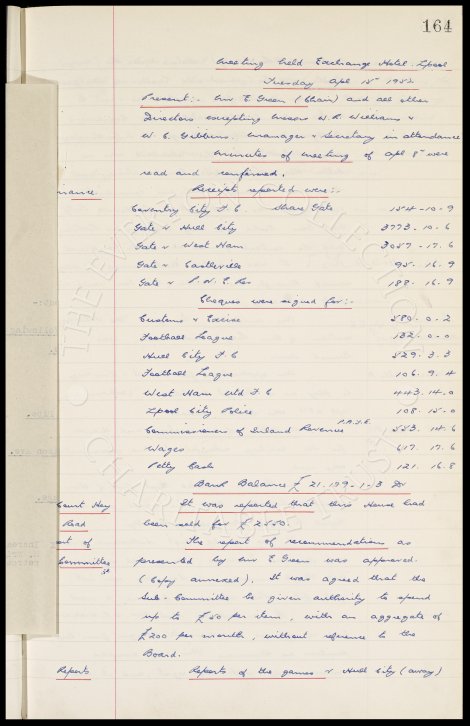 164
Meeting held Exchange Hotel. Lpool
Tuesday Apl 15th 1952.
Present:- Mr E. Green (Chair) and all other
Directors excepting Messrs W. R. Williams &
W. C. Gibbins. Manager & Secretary in attendance
Minutes of meeting of Apl 8th were
read and confirmed.
Receipts reported were:-
Coventry City F.C. Share Gate 154-10-9
Gate v Hull City 3773.10.6
Gate v West Ham 3057-17.6
Gate v 95. 16.9
Gate v P.N.E. Res 188. 16.9
Cheques were signed for:-
Customs & Excise 580.0.2
Football League 132.0-0
Hull City F.C 529.3.3
Football League 106.9.4
West Ham Utd F.C 443.14.0
Lpool City Police 108.15.0
Commissioners of Inland Revenue P.A.Y.E. 553.14.6
Wages 617.17.6
Petty Cash 121.16.8
Bank Balance £21.179-1-3 Dr
Court Hey It was reported that this House had
Road been sold for £2550.
The report of recommendations as
Committee presented by Mr E. Green was approved.
(Copy annexed). It was agreed that the
Sub-Committee be given authority to spend
up to £50 per item, with an aggregate of
£200 per month, without reference to the
Board.
Reports Reports of the games v Hull City (away)
THE EVERTON COLLECTION
CHARITABLE TRUST